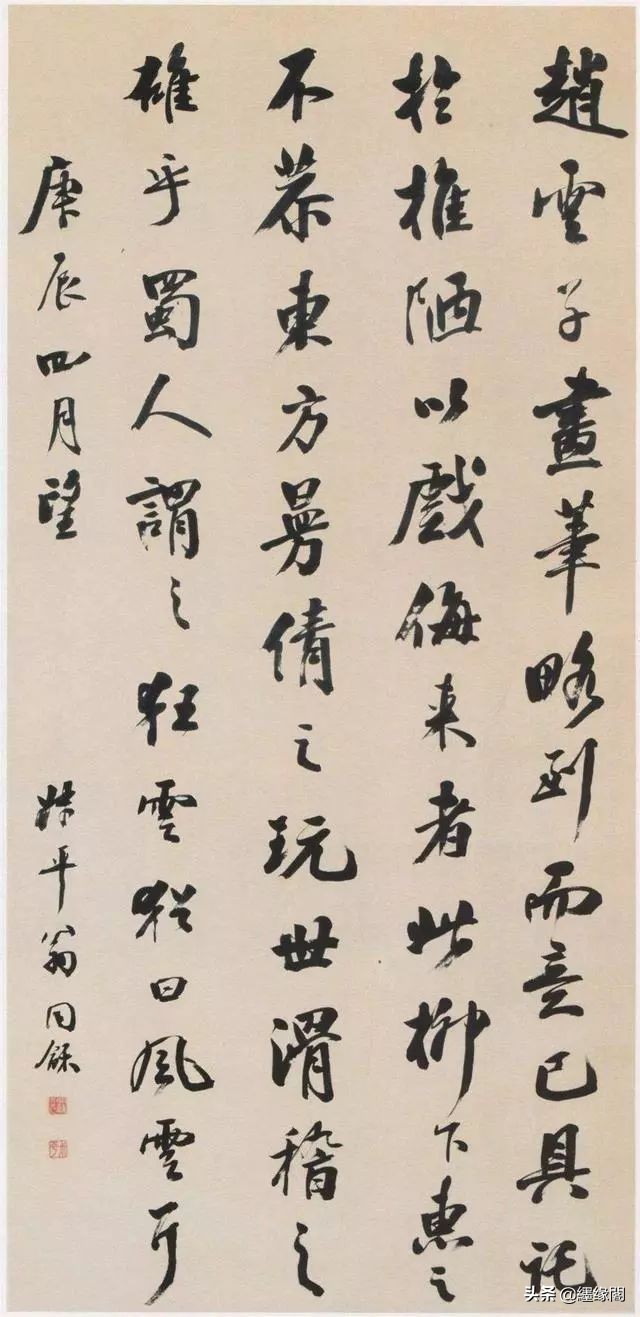 趙雲子畫筆略到而意已具託
於椎陋以戲侮来者此柳下惠之
不恭東方曼倩之玩世滑稽之
雄乎蜀人謂之狂雲猶曰風雲耳
庚辰四月望
叔平翁同龢
头条 @纆缘閣